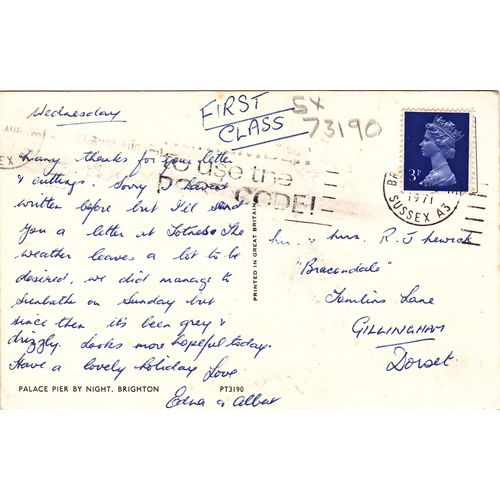 Wednesday
FIRST
CLASS
SX
73190
Many thanks for your letter
& cuttings. Sorry I haven't
written before but I'll send
you a letter at Totnes. The
weather leaves a lot to be
desired, we did manage to
sunbathe on Sunday but
since then it's been grey &
drizzly. Looks more hopeful today.
Have a lovely holiday Love
Edna & Albert
to use the
CODE!
3P
1971
SUSSEX A3
PRINTED IN GREAT BRITAIN
Mr. & Mrs. R. J
"Bracondale"
Tomlins Lane
GILLINGHAM
Dorset
PALACE PIER BY NIGHT, BRIGHTON
PT3190